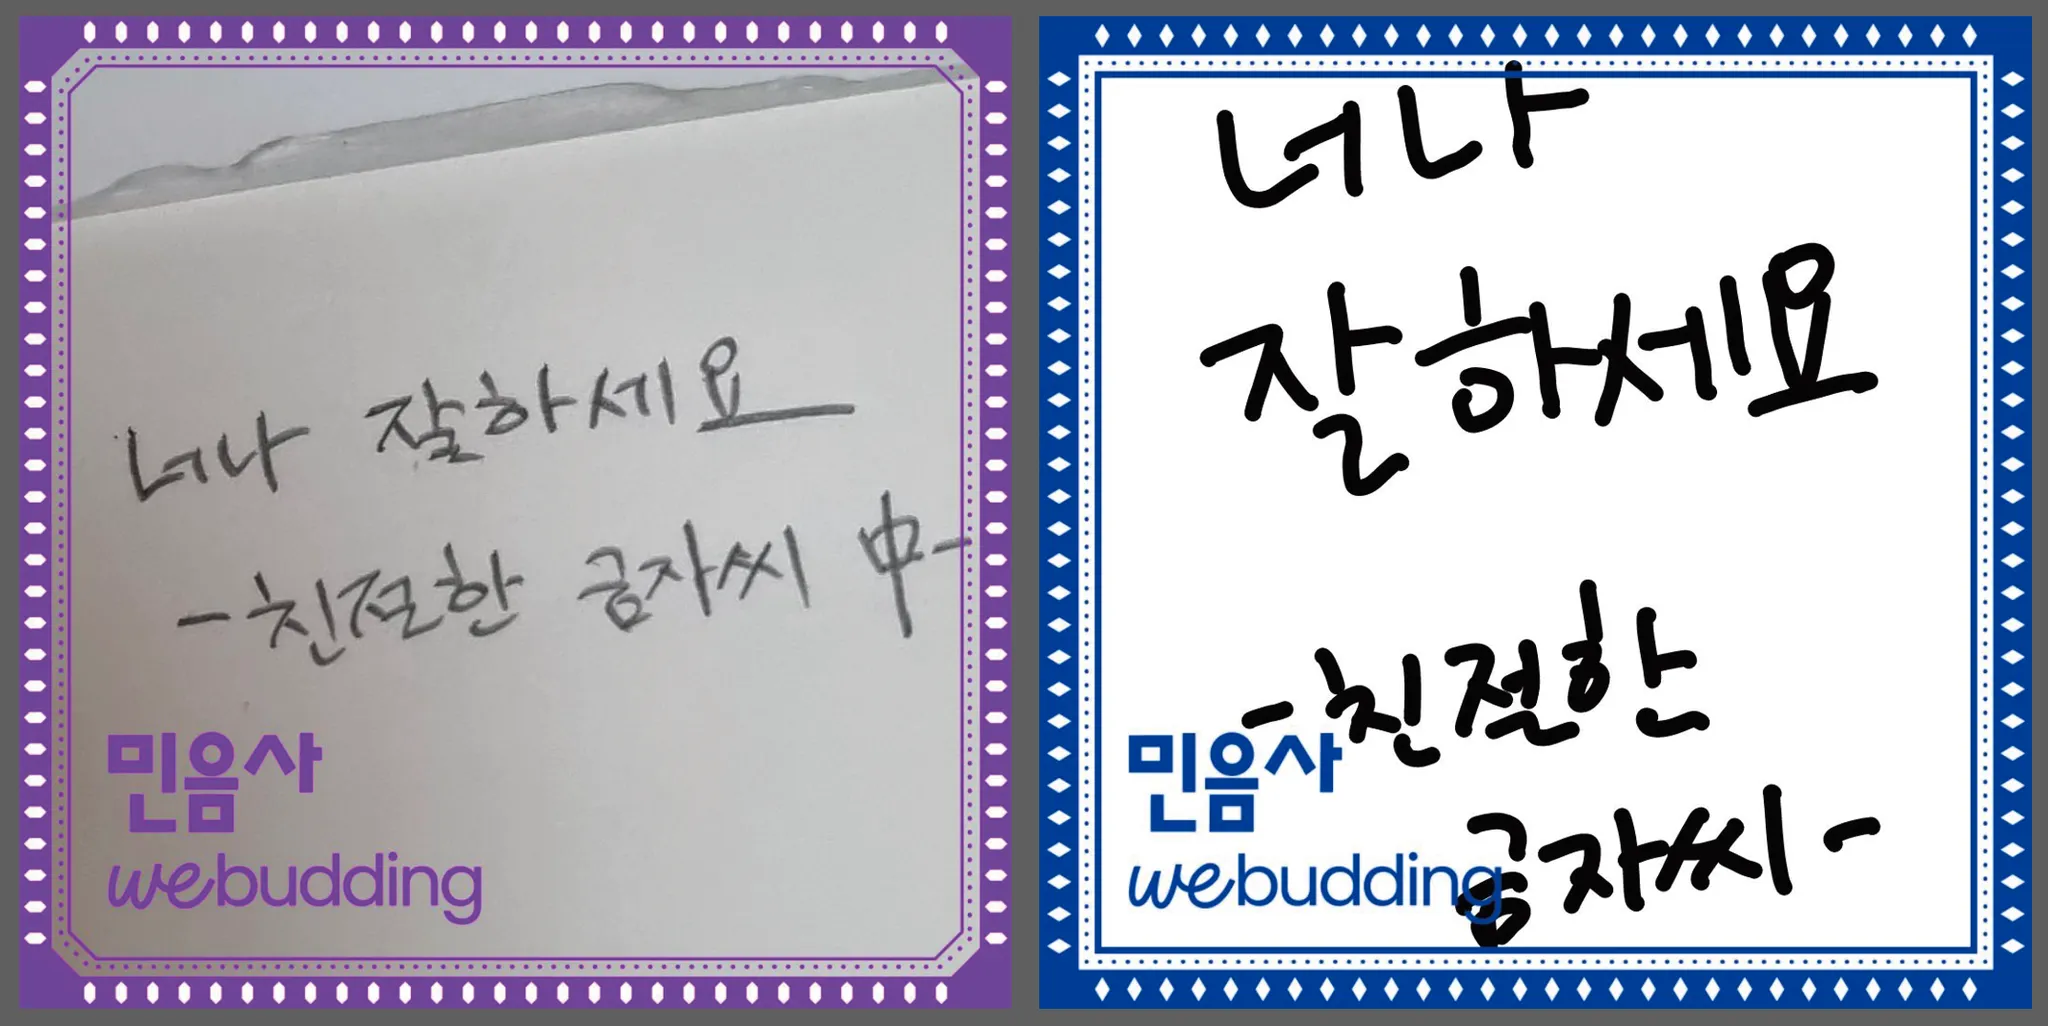 너나 잘하세요
-친절한 금자씨 中-
민음사
webudding
너나
잘하세요
-친절한
금자씨-
민음사
webudding